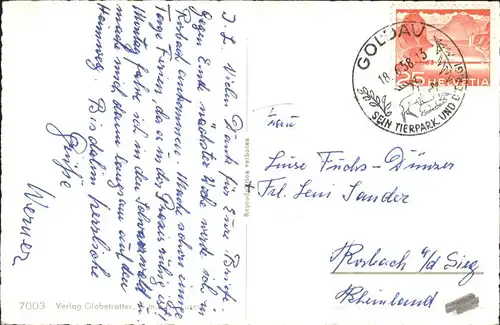 I. L. Vielen Dank für Eure Briefe.
Gegen Ende nächster Woche werde ich in
Rosbach ankommen. Mache schon einige
Tage Ferien, da es in der Praxis ruhig ist.
Montag fahre ich in den Schwarzwald &
mache mich dann langsam auf den
Heimweg. Bis dahin herzliche
Grüße
Werner
7003 Verlag Globetrotter,
Reproduktion verboten
GOLDAU
18. 58-13
SEIN TIERPARK UND
25 HELVETIA
Frau
Luise Fuchs-Dünzer
+ Frl. Leni Sander
Rosbach a/d Sieg
Rheinland